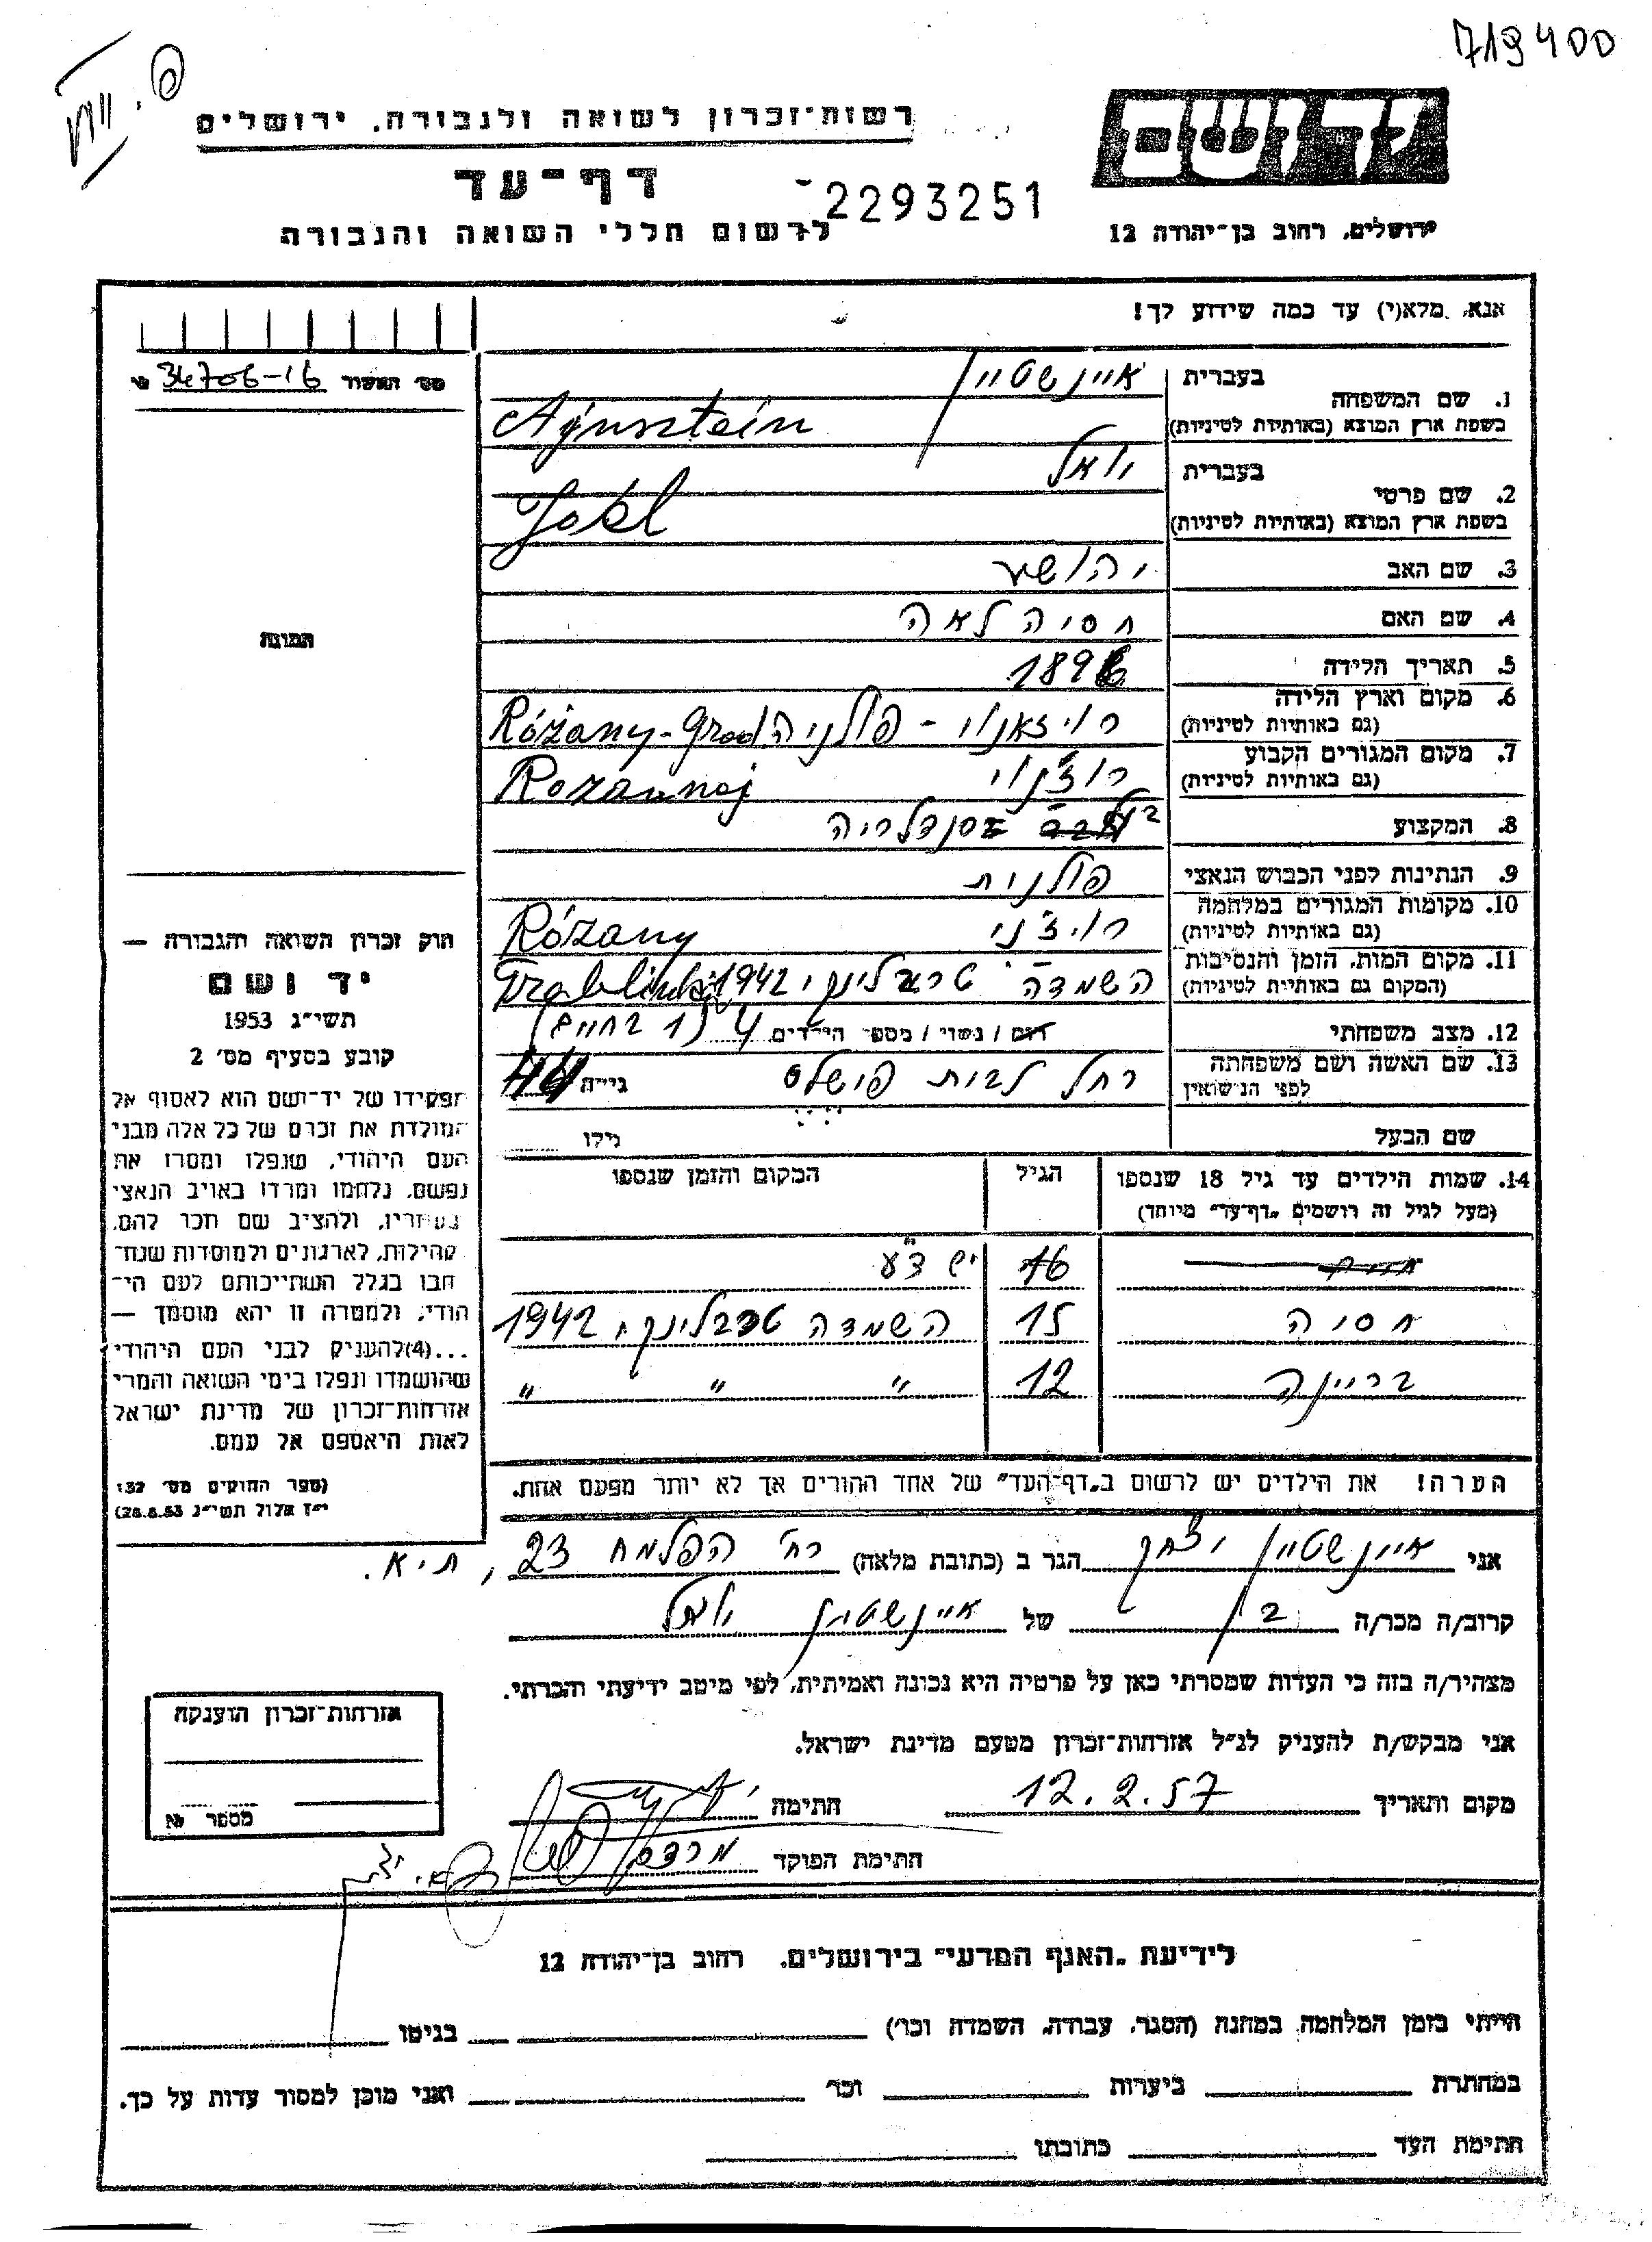 719400
רשות־זכרון לשואה ולגבורה, ירושלים
דף־עד
2293251
לרשום חללי השואה והגבורה
ירושלים, רחוב בן־יהודה 12
אנא, מלא(י) עד כמה שידוע לך!
מס׳ האשור 34706-16
1. שם המשפחה בעברית איינשטיין
בשפת ארץ המוצא (באותיות לטיניות) Ajnsztein
2. שם פרטי בעברית יואל
בשפת ארץ המוצא (באותיות לטיניות) Joel
3. שם האב יהושע
4. שם האם חסיה לאה
5. תאריך הלידה 1896
6. מקום וארץ הלידה (גם באותיות לטיניות) רויזאנוי - פולניה Różany-Grod
7. מקום המגורים הקבוע (גם באותיות לטיניות) רוז'נוי Rozannoj
8. המקצוע סנדלריה
9. הנתינות לפני הכבוש הנאצי פולנית
10. מקומות המגורים במלחמה (גם באותיות לטיניות) Różany
11. מקום המות, הזמן והנסיבות (המקום גם באותיות לטיניות) השמדה טרבלינקי 1942
12. מצב משפחתי רוק / נשוי / מספר הילדים 4 (1 בחיים)
13. שם האשה ושם משפחתה לפני הנישואין רחל לבית גילה 44
שם הבעל גילו
14. שמות הילדים עד גיל 18 שנספו
(מעל לגיל זה רושמים „דף־עד״ מיוחד)
הגיל
המקום והזמן שנספו
16 יש ד״ע
חסיה 15 השמדה טרבלינקי 1942
בריינה 12 " " "
הערה! את הילדים יש לרשום ב„דף־העד״ של אחד ההורים אך לא יותר מפעם אחת.
תמונה
חוק זכרון השואה והגבורה —
יד ושם
תשי״ג 1953
קובע בסעיף מס׳ 2
תפקידו של יד־ושם הוא לאסוף אל
המולדת את זכרם של כל אלה מבני
העם היהודי, שנפלו ומסרו את
נפשם, נלחמו ומרדו באויב הנאצי
בעוזריו, ולהציב שם וזכר להם,
לקהילות, לארגונים ולמוסדות שנח־
רבו בגלל השתייכותם לעם הי־
הודי, ולמטרה זו יהא מוסמך —
...(4) להעניק לבני העם היהודי
שהושמדו ונפלו בימי השואה והמרי
אזרחות־זכרון של מדינת ישראל
לאות היאספם אל עמם.
(ספר החוקים מס׳ 132
י״ז אלול תשי״ג 28.8.53)
אני איינשטיין יצחק הגר ב (כתובת מלאה) רח׳ הפלמח 23, ת״א.
קרוב/ה מכר/ה בן של איינשטיין יואל
מצהיר/ה בזה כי העדות שמסרתי כאן על פרטיה היא נכונה ואמיתית, לפי מיטב ידיעתי והכרתי.
אני מבקש/ת להעניק לנ״ל אזרחות־זכרון מטעם מדינת ישראל.
מקום ותאריך 12.2.57 חתימה
חתימת הפוקד
אזרחות־זכרון הוענקה
מספר №
לידיעת „האגף המדעי״ בירושלים, רחוב בן־יהודה 12
הייתי בזמן המלחמה במחנה (הסגר, עבודה, השמדה וכו׳) בגיטו
במחתרת ביערות וכו׳ ואני מוכן למסור עדות על כך.
חתימת העד כתובתו